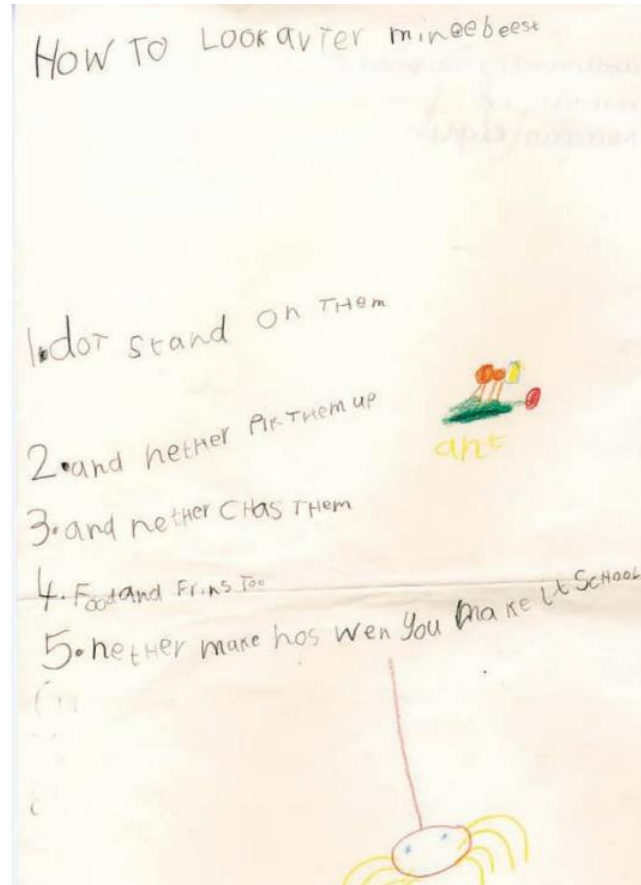 HOW TO LOOK avTer mineebeest
1. doT stand on THem
2. and netHer PiKTHem up
ant
3. and netHer CHas THem
4. Food and Frins Too
5. netHer make hos wen you make it SCHOOL